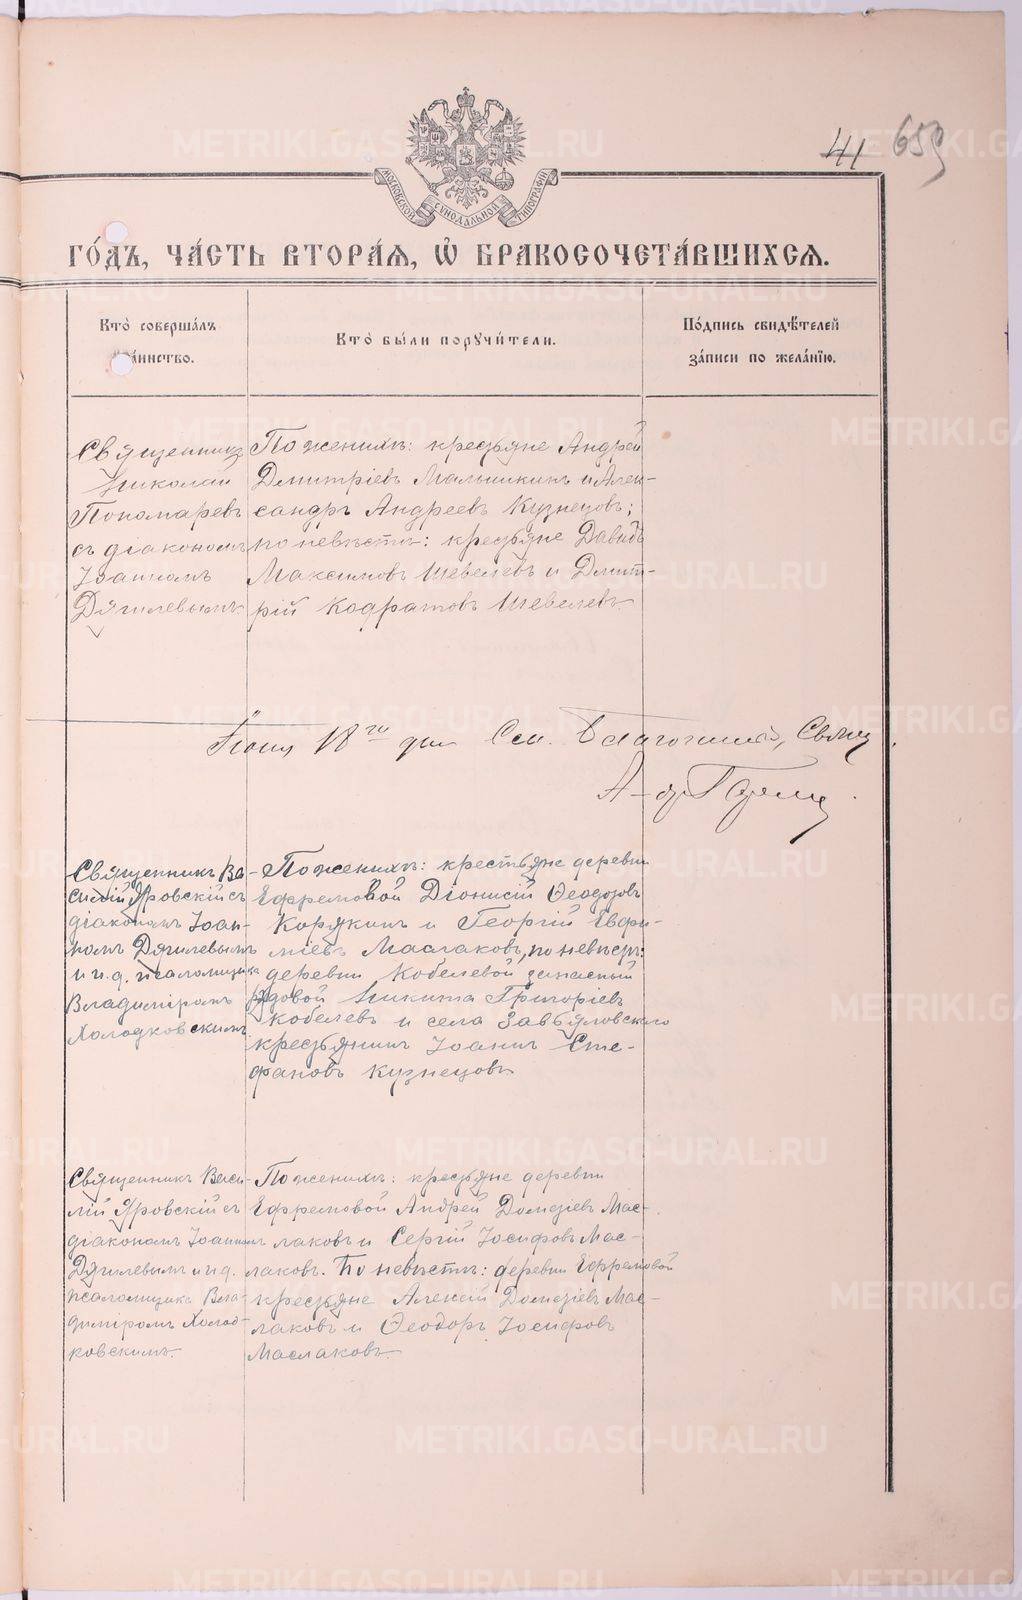 41 659
МОСКОВСКОЙ СѴНОДАЛЬНОЙ ТИПОГРАФІИ
ГО́ДЪ, ЧА́СТЬ ВТОРА́Я, Ѡ҆ БРАКОСОЧЕТА́ВШИХСЯ.
Кто̀ соверша́лъ
та́инство.
Кто̀ бы́ли порꙋчи́тели.
По́дпись свидѣ́телей
за́писи по жела́нїю.
Священникъ
Николай
Пономаревъ
съ діакономъ
Іоанномъ
Дягилевымъ.
По женихѣ: крестьяне Андрей
Дмитріевъ Малышкинъ и Алек-
сандръ Андреевъ Кузнецовъ;
по невѣстѣ: крестьяне Давидъ
Максимовъ Шевелевъ и Дмит-
рій Кодратовъ Шевелевъ.
18го дня Благочинный, Свящ
Священникъ Ва-
силій Яровскій съ
діакономъ Іоан-
номъ Дягилевымъ
и и.д. псаломщика
Владиміромъ
Холодковскимъ
По женихѣ: крестьяне деревни
Ефремовой Діонисій Ѳеодоровъ
Корякинъ и Георгій Евфи-
міевъ Маслаковъ, по невѣстѣ:
деревни Кобелевой запасный
рядовой Никита Григоріевъ
Кобелевъ и села Завьяловскаго
крестьянинъ Іоаннъ Сте-
фановъ Кузнецовъ.
Священникъ Васи-
лій Яровскій съ
діакономъ Іоанномъ
Дягилевымъ и и.д.
псаломщика Вла-
диміромъ Холод-
ковскимъ.
По женихѣ: крестьяне деревни
Ефремовой Андрей Дометіевъ Мас-
лаковъ и Сергій Іосифовъ Мас-
лаковъ. По невѣстѣ: деревни Ефремовой
крестьяне Алексій Дометіевъ Мас-
лаковъ и Ѳеодоръ Іосифовъ
Маслаковъ.
METRIKI.GASO-URAL.RU